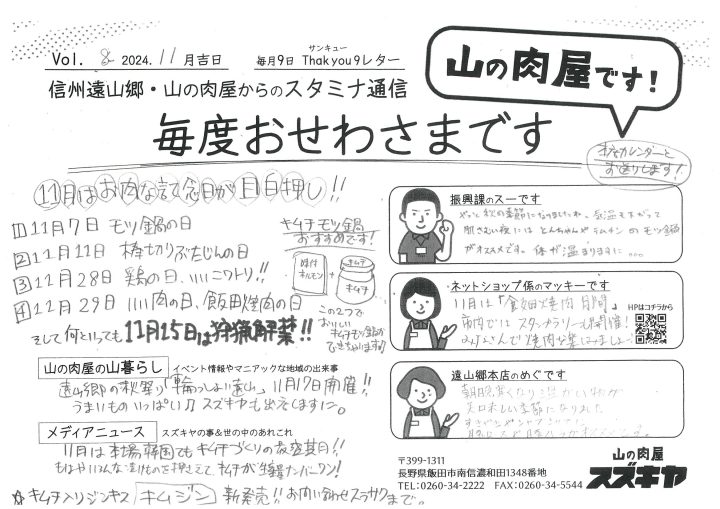 Vol. 8 2024. 11 月吉日
サンキュー
毎月9日 Thakyou9レター
山の肉屋です!
信州遠山郷・山の肉屋からのスタミナ通信
毎度おせわさまです
カレンダーと
お送りします!
11月はお肉な記念日が目白押し!!
1 11月7日 モツ鍋の日
2 11月11日 棒切りぶたじんの日
3 11月28日 鶏の日、いいニワトリ!!
4 11月29日 いい肉の日、飯田焼肉の日
キムチモツ鍋
おすすめです!
味付
ホルモン
キムチ
キムチ
この2つで
おいしい
キムチモツ鍋が
できちゃいます!!
そして何といっても11月15日は狩猟解禁!!
山の肉屋の山暮らし イベント情報やマニアックな地域の出来事
遠山郷の秋祭り「輪っしょい遠山」11月17日開催!!
うまいものいっぱい♫スズキヤも出店しますよ。
メディアニュース スズキヤの事&世の中のあれこれ
11月は本場韓国でもキムチづくりの最盛期!!
キムチが生産ナンバーワン!
☆キムチ入りジンギス キムジン 新発売!!お問い合わせスズキヤまで。
振興課のスーです
やっと秋の季節になりましたね。気温も下がって
肌さむい夜には とんちゃんやテッチャン のモツ鍋
がオススメです。体が温まりますよ...
ネットショップ係のマッキーです
HPはコチラから
11月は「飯田焼肉月間」
市内ではスタンプラリーも開催!
みなさんで焼肉
遠山郷本店のめぐです
朝晩寒くなり
美味しい季節になりました
〒399-1311
長野県飯田市南信濃和田1348番地
TEL:0260-34-2222 FAX:0260-34-5544
山の肉屋
スズキヤ